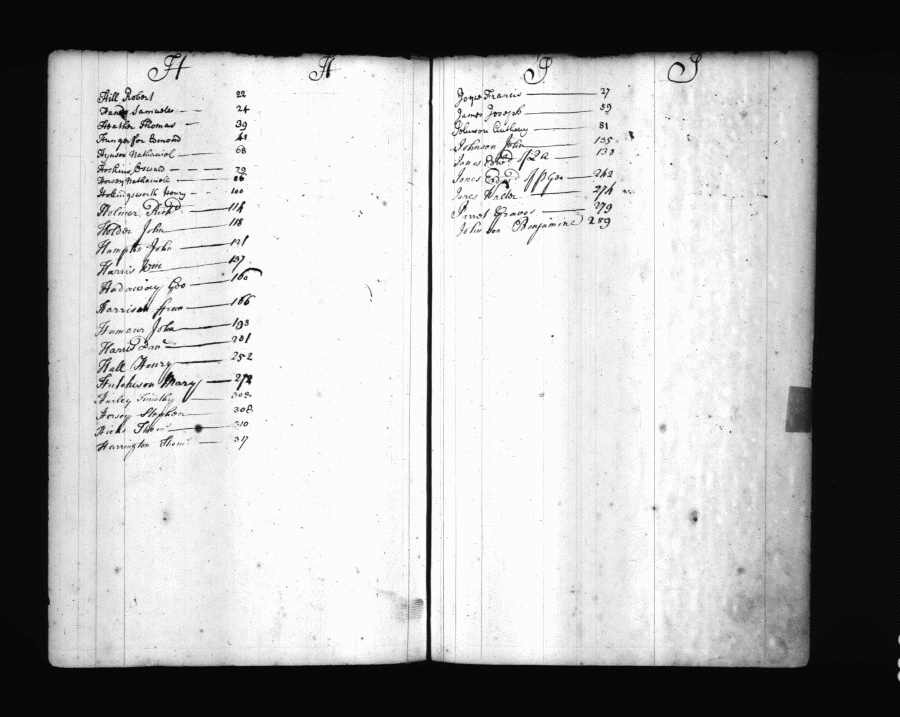 H H
Hill Robert 22
Handy Samuel 24
Heather Thomas 39
Hungerfor Edmond 41
Hynson Nathaniel 68
Hoskins Oswald 79
Hersey Nathaniell 86
Hollingsworth Henry 100
Holmer Richd 114
Holder John 118
Hampton John 121
Harris Wm 137
Hadaway Geo 160
Harrison 166
Hamour John 193
Harris 201
Hall Henry 252
Hutchison Mary 272
Hurley Timothy 302
Hersey Stephen 308
Hicks Thoms 310
Harrington Thoms 317
J J
Joyce Francis 27
James Joseph 59
Johnson Anthony 81
Johnson John 135
Jones 138
Jones Geo 242
Jones Walter 274
Jarrot Graves 279
Johnson Benjamine 289